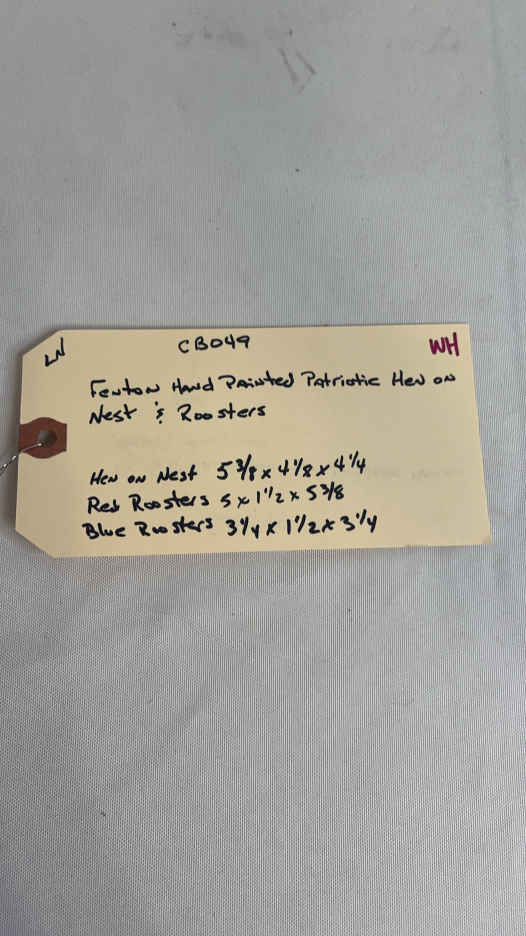 LN
CB049
WH
Fenton Hand Painted Patriotic Hen on
Nest & Roosters
Hen on Nest 5 3/8 x 4 1/8 x 4 1/4
Red Roosters 5 x 1 1/2 x 5 3/8
Blue Roosters 3 1/4 x 1 1/2 x 3 1/4